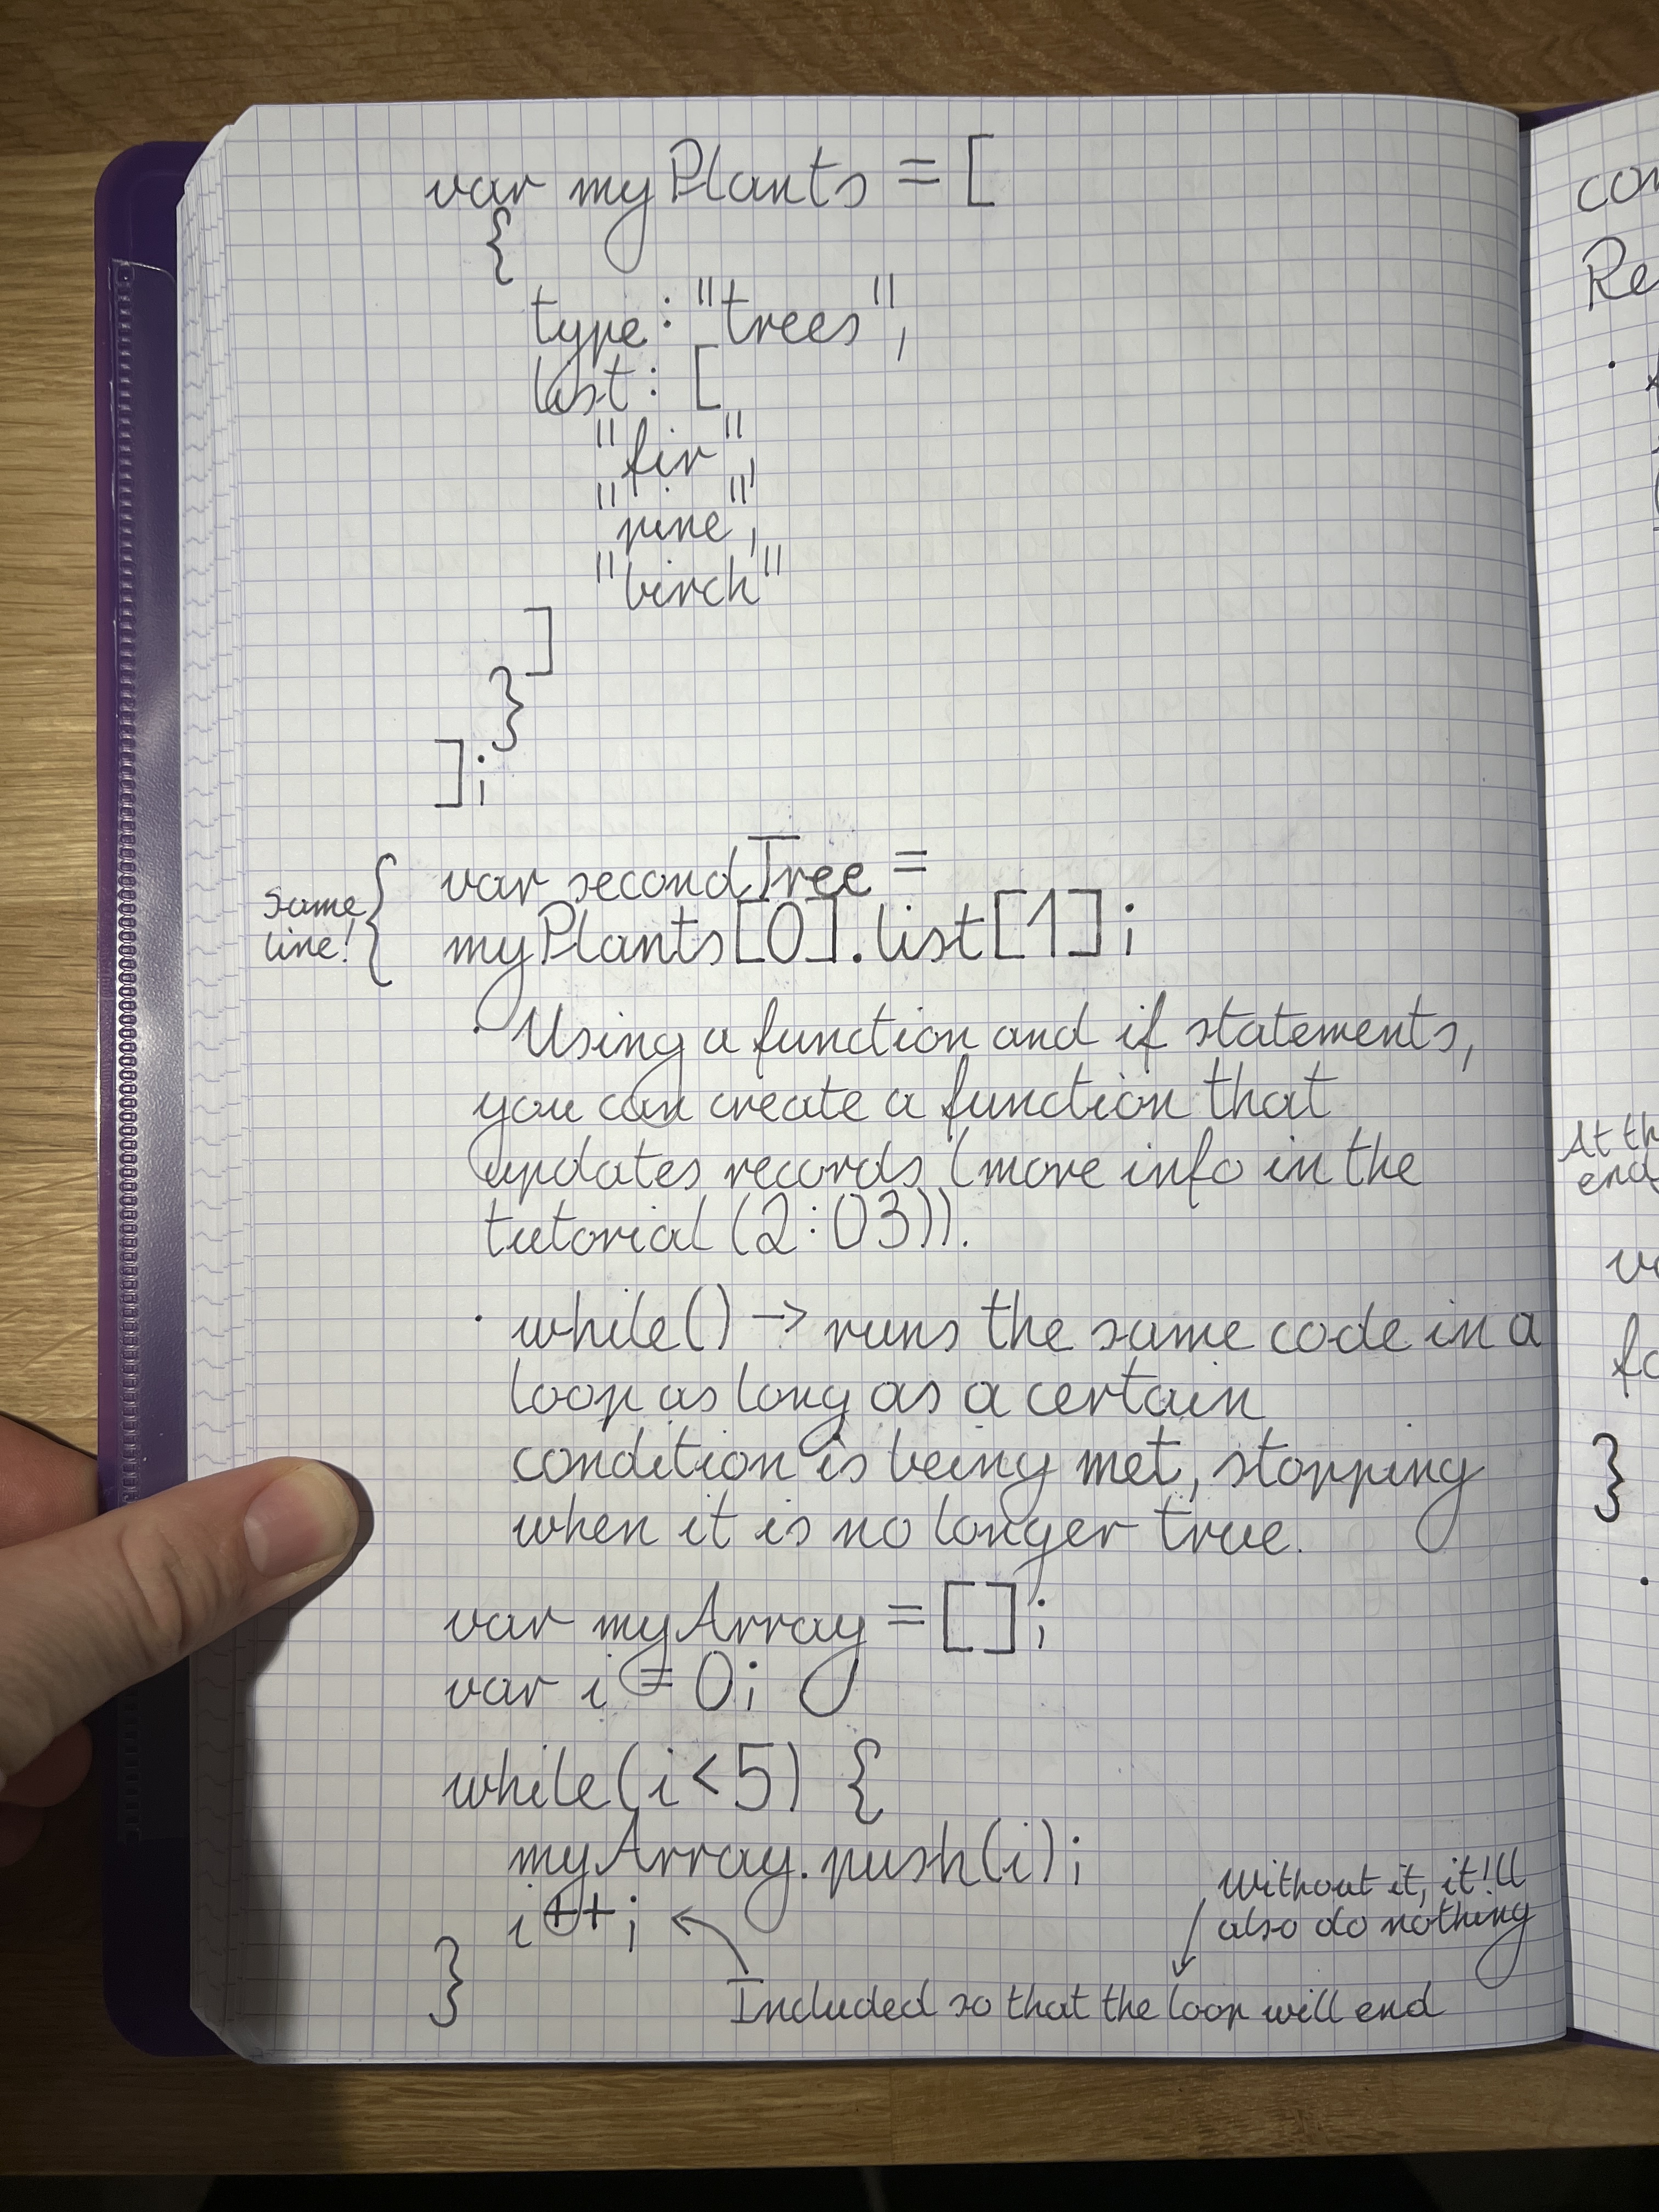 var myPlants = [
{
type: "trees",
list: [
"fir",
"pine",
"birch"
]
}
];
var secondTree =
same
line!
{
myPlants[0].list[1];
· Using a function and if statements,
you can create a function that
updates records (more info in the
tutorial (2:03)).
· while() → runs the same code in a
loop as long as a certain
condition is being met, stopping
when it is no longer true.
var myArray = [];
var i = 0;
while(i<5) {
myArray.push(i);
i++;
}
Without it, it'll
also do nothing
Included so that the loop will end
At th
end
}